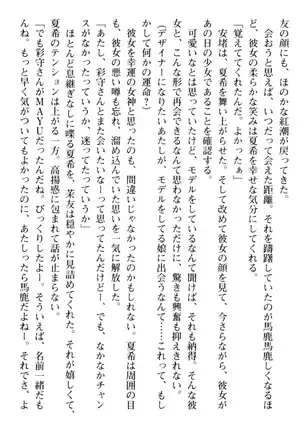 友の顔にも、ほのかな紅潮が戻ってきた。
　会おうと思えば、いつだって会えた距離。それを躊躇していたのが馬鹿馬鹿しくなるほ
ど、彼女の柔らかな笑みは夏希を幸せな気分にしてくれる。
「覚えててくれたんだ。よかったぁ」
　安堵は、夏希を舞い上がらせた。そして改めて彼女の顔を見て、今さらながら、彼女が
あの日の少女であることを確認する。
　可愛いなとは思っていたけど、モデルをしているなんて聞けば、それも納得。そんな彼
女と、こんな形で再会できるなんて思わなかっただけに、驚きも興奮も抑えきれない。
（デザイナーになりたいあたしが、モデルをしてる娘に出会うなんて……これって、もし
かして何かの運命？）
　彼女を幸運の女神と思ったのも、間違いじゃなかったのかもしれない。夏希は周囲の目
も、彼女の悪い噂も忘れ、溜め込んでいた思いを一気に解放した。
「あたし、彩守さんとまた会いたいなーって思ってたんだけどー、でも、なかなかチャン
スがなかったっていうか、迷ってたっていうか」
　ほとんど息継ぎなしに喋る夏希を、茉友は穏やかに見詰めてくれた。それが嬉しくて、
夏希のテンションは上がる一方。高揚感に包まれて話が止まらない。
「でも彩守さんがＭＡＹＵだったんだね。びっくりしたよー。そういえば、名前一緒だも
んね。もっと早く気がついてもよかったのに、あたしったら馬鹿だよねー。それでさ、よ